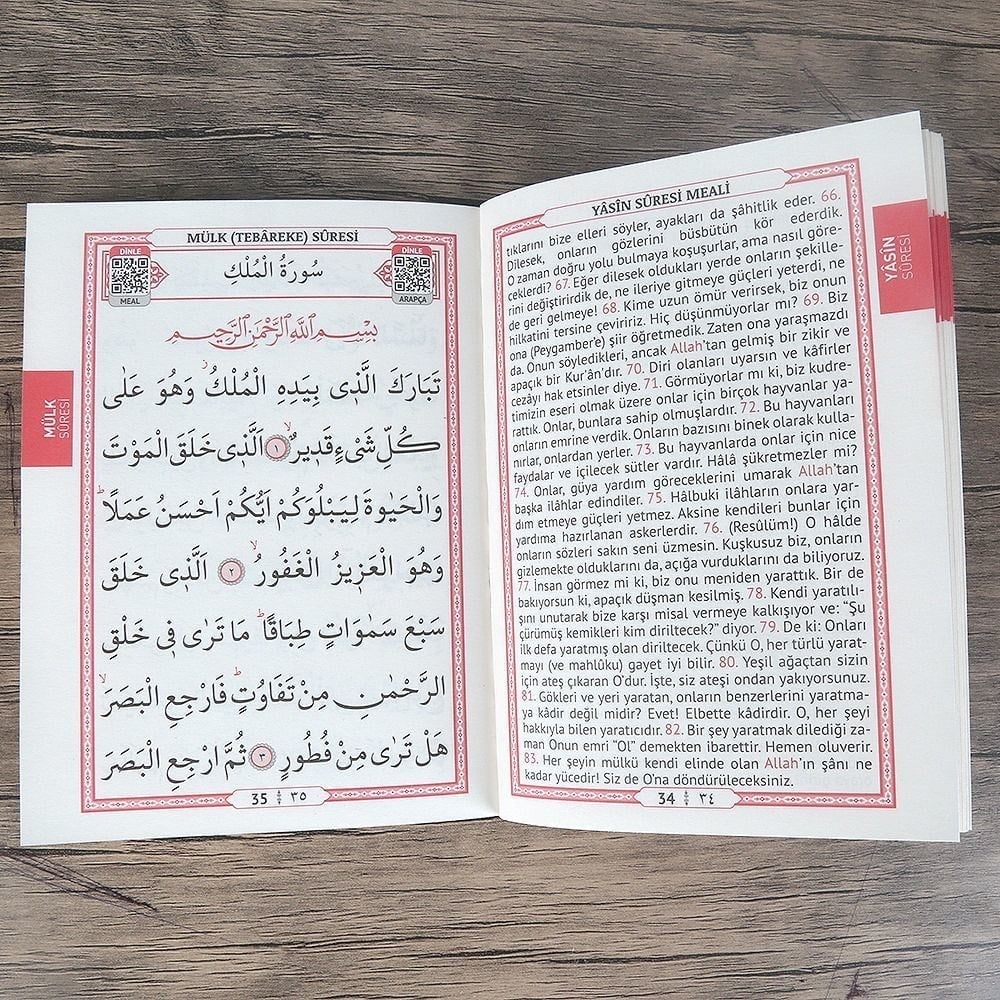 YÂSÎN SÛRESİ MEALİ
tıklarını bize elleri söyler, ayakları da şâhitlik eder. 66.
Dilesek, onların gözlerini büsbütün kör ederdik.
O zaman doğru yolu bulmaya koşuşurlar, ama nasıl göre-
ceklerdi? 67. Eğer dilesek oldukları yerde onların şekille-
rini değiştirirdik de, ne ileriye gitmeye güçleri yeterdi, ne
de geri gelmeye! 68. Kime uzun ömür verirsek, biz onun
hilkatini tersine çeviririz. Hiç düşünmüyorlar mı? 69. Biz
ona (Peygamber'e) şiir öğretmedik. Zaten ona yaraşmazdı
da. Onun söyledikleri, ancak Allah'tan gelmiş bir zikir ve
apaçık bir Kur'ân'dır. 70. Diri olanları uyarsın ve kâfirler
cezâyı hak etsinler diye. 71. Görmüyorlar mı ki, biz kudre-
timizin eseri olmak üzere onlar için birçok hayvanlar ya-
rattık. Onlar, bunlara sahip olmuşlardır. 72. Bu hayvanları
onların emrine verdik. Onların bazısını binek olarak kulla-
nırlar, onlardan yerler. 73. Bu hayvanlarda onlar için nice
faydalar ve içilecek sütler vardır. Hâlâ şükretmezler mi?
74. Onlar, güya yardım göreceklerini umarak Allah'tan
başka ilâhlar edindiler. 75. Hâlbuki ilâhların onlara yar-
dım etmeye güçleri yetmez. Aksine kendileri bunlar için
yardıma hazırlanan askerlerdir. 76. (Resûlüm!) O hâlde
onların sözleri sakın seni üzmesin. Kuşkusuz biz, onların
gizlemekte olduklarını da, açığa vurduklarını da biliyoruz.
77. İnsan görmez mi ki, biz onu meniden yarattık. Bir de
bakıyorsun ki, apaçık düşman kesilmiş. 78. Kendi yaratılı-
şını unutarak bize karşı misal vermeye kalkışıyor ve: “Şu
çürümüş kemikleri kim diriltecek?” diyor. 79. De ki: Onları
ilk defa yaratmış olan diriltecek. Çünkü O, her türlü yarat-
mayı (ve mahlûku) gayet iyi bilir. 80. Yeşil ağaçtan sizin
için ateş çıkaran O'dur. İşte, siz ateşi ondan yakıyorsunuz.
81. Gökleri ve yeri yaratan, onların benzerlerini yaratma-
ya kâdir değil midir? Evet! Elbette kâdirdir. O, her şeyi
hakkıyla bilen yaratıcıdır. 82. Bir şey yaratmak dilediği za-
man Onun emri “Ol” demekten ibarettir. Hemen oluverir.
83. Her şeyin mülkü kendi elinde olan Allah'ın şânı ne
kadar yücedir! Siz de O'na döndürüleceksiniz.
34 ٣٤
YÂSÎN
SÛRESİ
MÜLK (TEBÂREKE) SÛRESİ
DİNLE
MEAL
سُورَةُ الْمُلْكِ
DİNLE
ARAPÇA
بِسْمِ اللّٰهِ الرَّحْمٰنِ الرَّحِيمِ
تَبَارَكَ الَّذٖى بِيَدِهِ الْمُلْكُ وَهُوَ عَلٰى
كُلِّ شَیْءٍ قَدٖيرٌۙ ١ اَلَّذٖى خَلَقَ الْمَوْتَ
وَالْحَيٰوةَ لِيَبْلُوَكُمْ اَيُّكُمْ اَحْسَنُ عَمَلًاؕ
وَهُوَ الْعَزٖيزُ الْغَفُورُۙ ٢ اَلَّذٖى خَلَقَ
سَبْعَ سَمٰوَاتٍ طِبَاقًاؕ مَا تَرٰى فٖى خَلْقِ
الرَّحْمٰنِ مِنْ تَفَاوُتٍؕ فَارْجِعِ الْبَصَرَۙ
هَلْ تَرٰى مِنْ فُطُورٍ ٣ ثُمَّ ارْجِعِ الْبَصَرَ
35 ٣٥
MÜLK
SÛRESİ